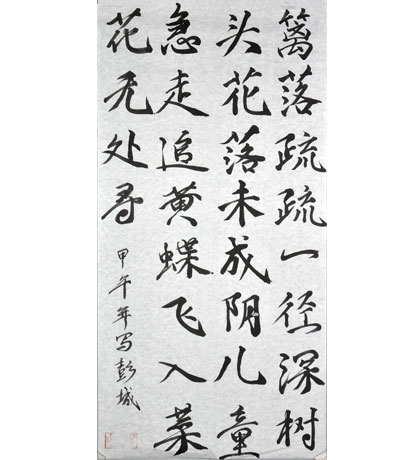 篱落疏疏一径深树
头花落未成阴儿童
急走追黄蝶飞入菜
花无处寻
甲午年写彭城